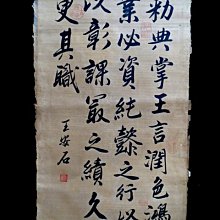 勑典掌王言潤色鴻
業必資純懿之行以
改彰課最之績久
更其職
王安石